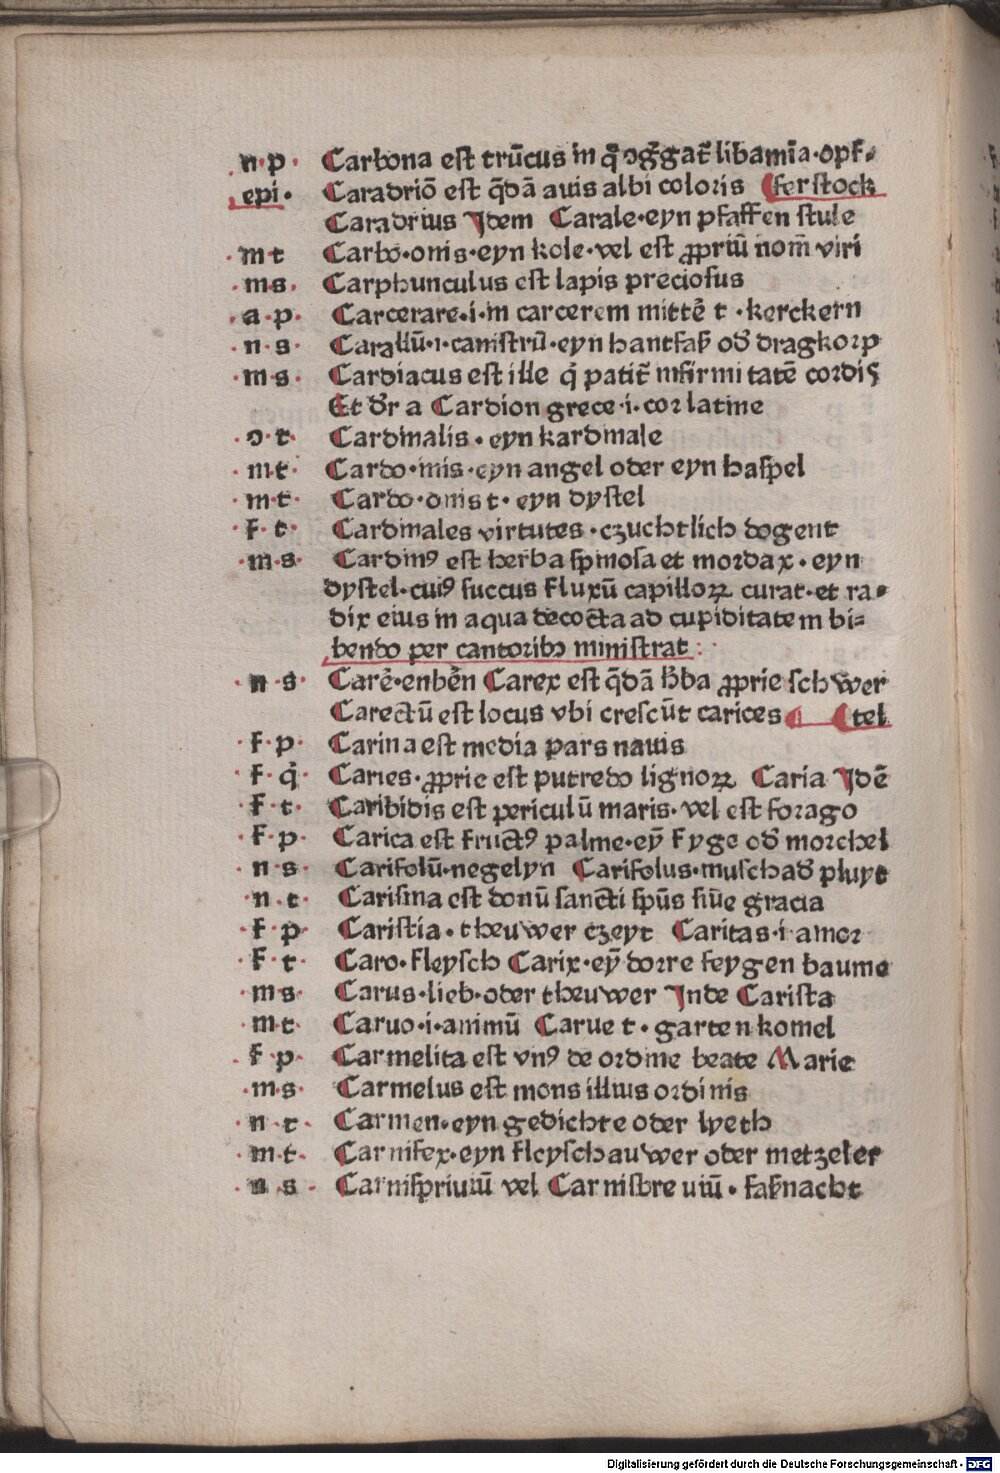 ·n·p· Carbona est trūcus in q̄ ɔg̃gat̃ libamĩa·opf⸗
epi· Caradriō est q̄dā auis albi coloris (ferstock
Caradrius Jdem Carale·eyn pfaffen stule
·m t Carbo·onis·eyn kole·vel est ꝓpriū nom̄ viri
·m s· Carphunculus est lapis preciosus
·a·p· Carcerare·i·in carcerem mittē t·kerckern
·n·s· Carallū·i·canistrū·eyn hantfaß od̓ dragkorp
·m s· Cardiacus est ille q̇ patit̃ infirmitatē cordis
Et d̓r a Cardion grece·i·cor latine
·ɔ·t· Cardinalis·eyn kardinale
·m t· Cardo·inis·eyn angel oder eyn haspel
·m t· Cardo·onis t·eyn dystel
f·t· Cardinales virtutes·czuchtlich dogent
·m·s· Cardinꝰ est herba spinosa et mordax·eyn
dystel·cuiꝰ succus fluxū capilloꝝ curat·et ra⸗
dix eius in aqua decocta ad cupiditatem bi⸗
bendo per cantoribꝫ ministrat:
·n s· Carē·enbēn Carex est q̄dā h̓ba ꝓprie schwer
Carectū est locus vbi crescūt carices (tel
·f·p· Carina est media pars nauis
·f·q̇· Caries·ꝓprie est putredo lignoꝝ Caria Jdē
·f·t· Caribidis est periculū maris·vel est forago
·f·p· Carica est fructꝰ palme·eȳ fyge od̓ morchel
·n·s· Carifolū·negelyn Carifolus·muschad̓ pluyt
·n·t· Carisma est donū sancti sp̄us siūe gracia
·f·p· Caristia·theuwer czeyt Caritas·i·amor
·f·t· Caro·fleysch Carix·eȳ dorre feygen baume
·m s· Carus·lieb·oder theuwer Jnde Carista
·m t· Caruo·i·animū Carue t·garten komel
·f p· Carmelita est vnꝰ de ordine beate Marie
·m·s· Carmelus est mons illius ordinis
·n·t· Carmen·eyn gedichte oder lyeth
·m·t· Carnifex·eyn fleyschauwer oder metzeler
·n s· Carnispriuiū vel Carnisbreuiū·faßnacht
Digitalisierung gefördert durch die Deutsche Forschungsgemeinschaft - DFG